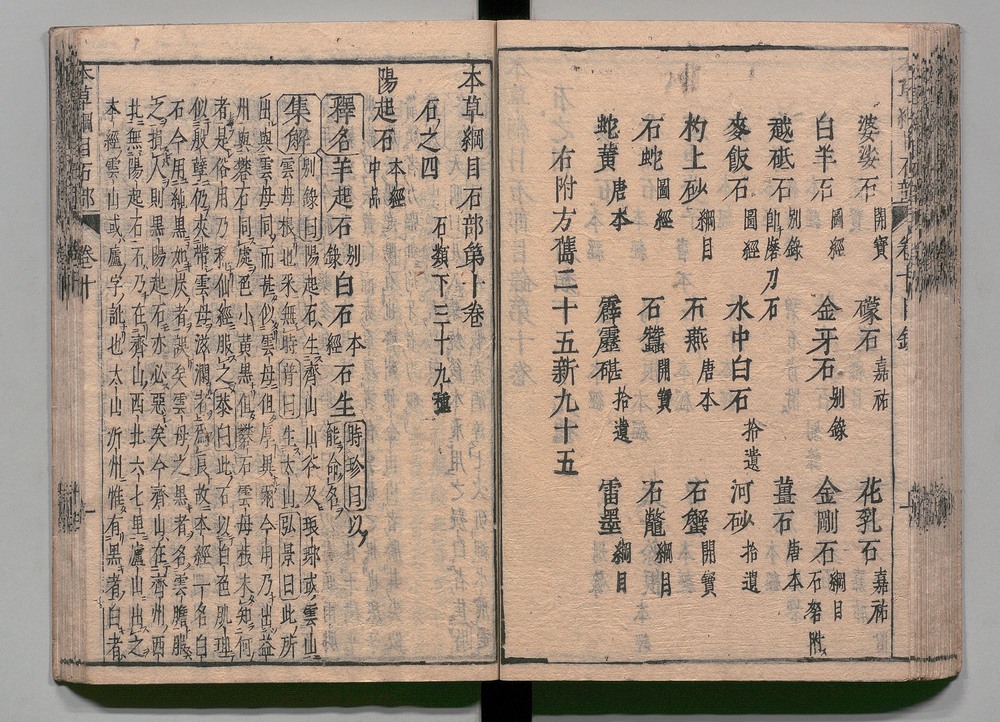 婆娑石 開寶 礞石 嘉祐 花乳石 嘉祐
白羊石 圖經 金牙石 别錄 金剛石 綱目 石砮附
越砥石 别錄 卽磨刀石 薑石 唐本
麥飯石 圖經 水中白石 拾遺 河砂 拾遺
杓上砂 綱目 石燕 唐本 石蟹 開寶
石蛇 圖經 石蠶 開寶 石鼈 綱目
蛇黄 唐本 霹靂碪 拾遺 雷墨 綱目
右附方舊三十五新九十五
本草綱目石部第十卷
石之四 石類下三十九種
陽起石 本經中品
釋名 羊起石 别錄 白石 本經 石生 時珍曰以能命名
集解 别錄曰陽起石生齊山山谷及琅琊或雲山
雲母根也采無時普曰生太山弘景曰此所
出與雲母同而甚似雲母但厚異爾今用乃出益
州與礬石同處色小黄黒但礬石雲母根未知何
者是俗用乃稀仙經服之恭曰此石以白色肌理
似殷孽仍夾帶雲母滋潤者爲良故本經一名白
石今用純黒如炭者誤矣雲母之黒者名雲膽服
之損人則黒陽起石亦必惡矣今齊山在齊州西
北無陽起石石乃在齊山西北六七里盧山出之
本經雲山或盧字訛也太山沂州惟有黒者白者
本草綱目石部 卷十